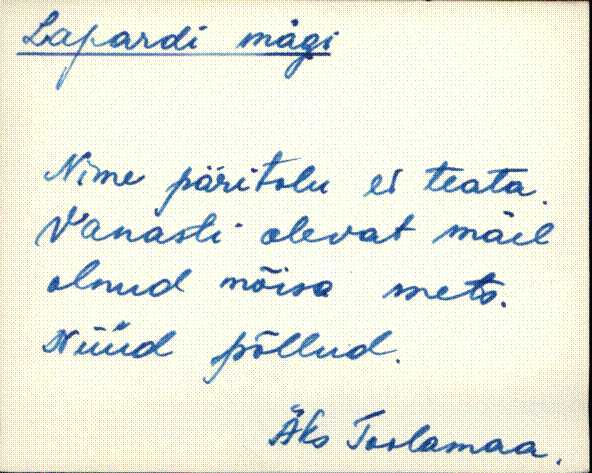 Lapardi mägi
Nime päritolu ei teata.
Vanasti olevat mäel
olnud mõisa mets.
Nüüd põllud.
Äks Toolamaa.